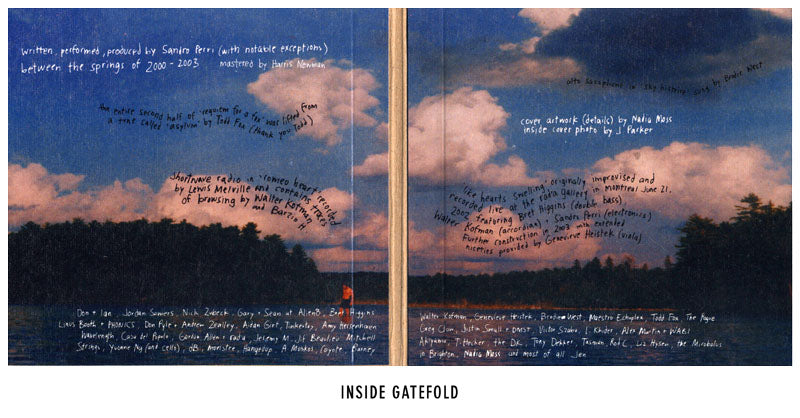 written, performed, produced by Sandro Perri (with notable exceptions)
between the springs of 2000-2003 mastered by Harris Newman
the entire second half of 'requiem for a fox' was lifted from
a tune called 'asylum' by Todd Fox (thank you Todd)
shortwave radio in 'romeo heart' recorded
by Lewis Melville and contains traces
of browsing by Walter Kofman
and Barzio H
Don + Ian, Jordan Somers, Nick Zubeck, Gary + Sean at Alien8, Bret Higgins
Linus Booth + PHONICS, Don Pyle + Andrew Zealley, Aidan Girt, Tinkertoy, Amy Hersenhoren
Wavelength, Casa del Popolo, Gordon Allen + rada, Jeremy M., Jf Beaulieu Mitchell
Strings, Yvonne Ng (and cells), dB, moristre, Hangedup, A Monkos, Coyote, Barney
alto saxophone in 'sky histoire' sung by Brodie West
cover artwork (details) by Nadia Moss
inside cover photo by J Parker
'like hearts swelling' originally improvised and
recorded live at the rada gallery in montreal June 21,
2002 featuring Bret Higgins (double bass)
Walter Kofman (accordian), Sandro Perri (electronics)
Further construction in 2003 with extended
niceties provided by Genevieve Heistek (viola)
Walter Kofman, Genevieve Heistek, Brodie West, Maestro Echoplex, Todd Fox, The Rogue
Greg Clow, Justin Small + DMST, Victor Szabo, I Khider, Alex Martin + WABI
Akiyama, T. Hecker, the DK, Tony Dekker, Tasman, Rob C, Liz Hysen, the Mirabolus
in Brighton, Nadia Moss and most of all Jen
INSIDE GATEFOLD